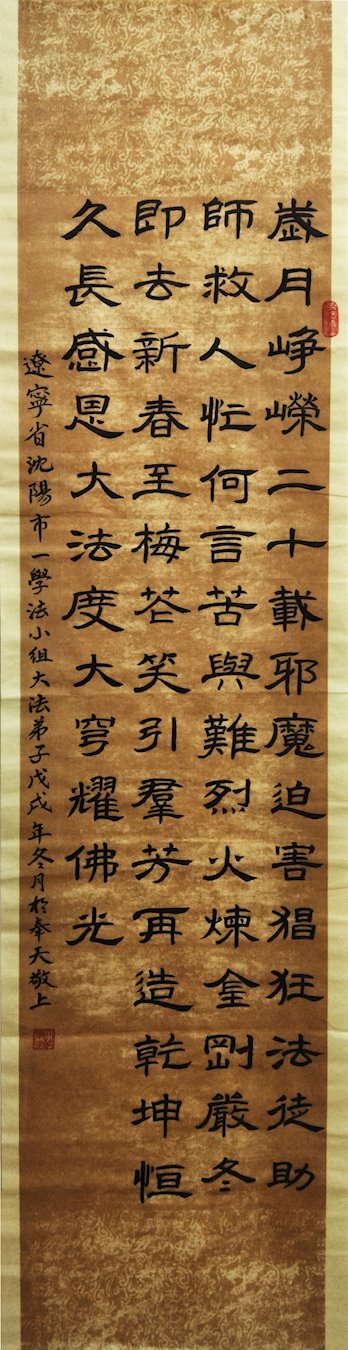 歲月崢嶸二十載邪魔迫害猖狂法徒助
師救人忙何言苦與難烈火煉金剛嚴冬
即去新春至梅芲笑引羣芳再造乾坤恒
久長感恩大法度大穹耀佛光
遼寧省沈陽市一學法小組大法弟子戊戌年冬月於奉天敬上